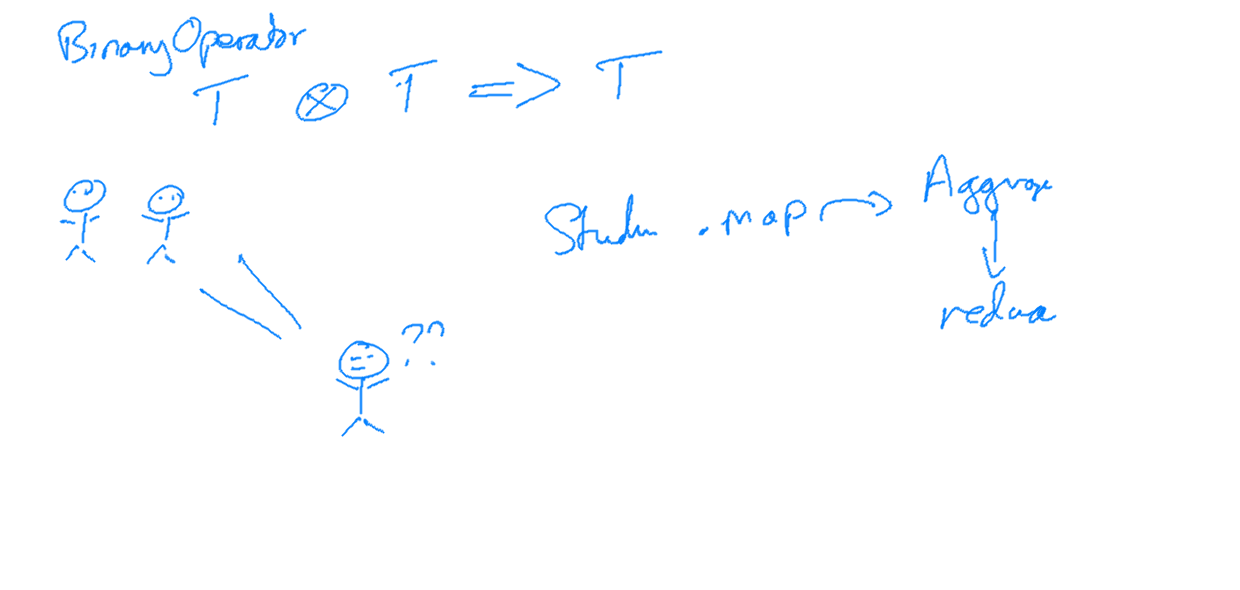 BinaryOperator
T ⊗ T => T
Studen .map → Aggrge
??
reduce